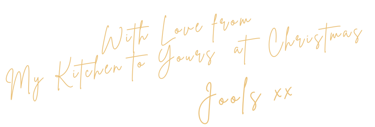 With Love from
My Kitchen to Yours at Christmas
Jools xx